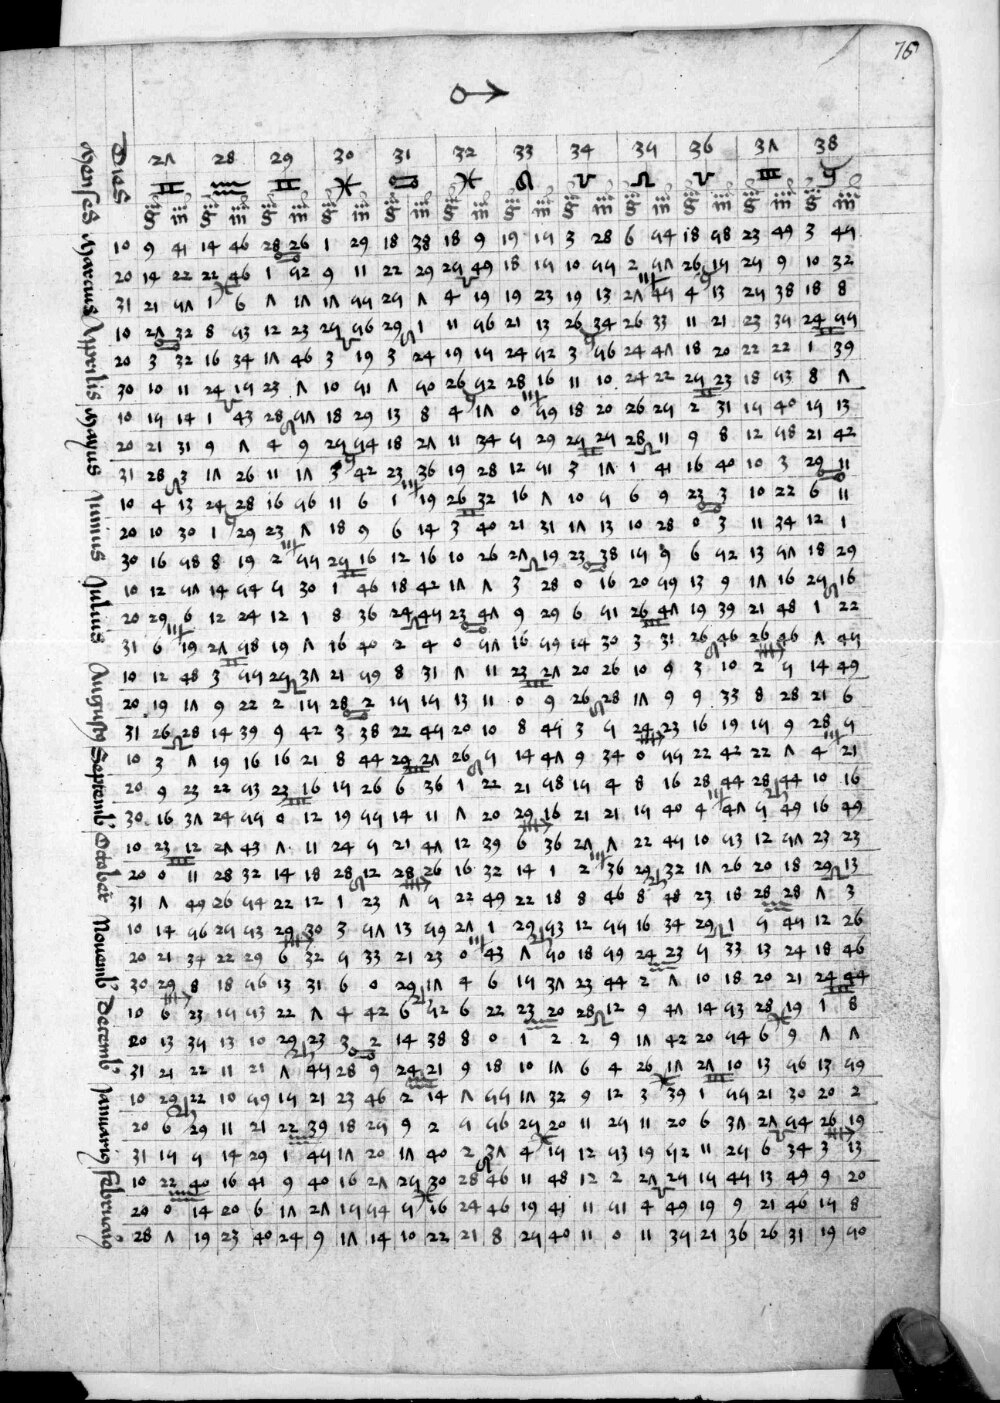 75
♂
Menses Dies 27 28 29 30 31 32 33 34 35 36 37 38
♊ ♒ ♊ ♓ ♋ ♓ ♌ ♈ ♌ ♈ ♍ ♉
g m g m g m g m g m g m g m g m g m g m g m g m
Marcius 10 9 41 14 46 28 26 1 29 18 38 18 9 19 15 3 28 6 54 18 58 23 49 3 45
20 14 22 22 46 1 52 9 11 22 29 25 49 18 15 10 55 2 57 26 15 25 9 10 32
31 21 57 1 6 7 17 17 55 25 7 4 19 19 23 19 13 27 45 4 13 25 38 18 8
Aprilis 10 27 32 8 53 12 23 25 56 29 1 11 56 21 13 26 34 26 33 11 21 23 35 24 55
20 3 32 16 34 17 46 3 19 3 24 19 15 24 52 3 56 24 47 18 20 22 22 1 39
30 10 11 24 15 23 7 10 51 7 50 26 52 28 16 11 10 24 22 25 23 18 53 8 7
Mayus 10 15 14 1 43 28 57 18 29 13 8 4 17 0 59 18 20 26 25 2 31 15 40 15 13
20 21 31 9 7 4 9 25 54 18 27 11 34 5 29 25 25 28 11 9 8 12 58 21 42
31 28 3 17 26 11 17 3 42 23 36 19 28 12 51 3 17 1 41 16 40 10 3 29 11
Iunius 10 4 13 24 28 16 56 11 6 1 19 26 32 16 7 10 5 6 9 23 3 10 22 6 11
20 10 30 1 29 23 7 18 9 6 14 3 40 21 31 17 13 10 28 0 3 11 34 12 1
30 16 58 8 19 2 55 25 16 12 16 10 26 27 19 23 38 15 9 6 52 13 57 18 29
Iulius 10 12 57 14 54 5 30 1 46 18 42 17 7 3 28 0 16 20 59 13 9 17 16 25 16
20 29 6 12 24 12 1 8 36 24 45 23 47 9 29 6 51 26 47 19 39 21 48 1 22
31 6 19 27 58 19 7 16 40 2 4 0 57 16 59 14 30 3 31 26 46 26 46 7 45
Augustus 10 12 48 3 55 25 37 21 59 8 31 7 11 23 27 20 26 10 9 3 10 2 5 14 49
20 19 17 9 22 2 15 28 2 15 15 13 11 0 9 26 28 17 9 9 33 8 28 21 6
31 26 28 14 39 9 42 3 38 22 45 20 10 8 45 3 5 24 23 16 19 15 9 28 5
Septembr 10 3 7 19 16 16 21 8 44 29 27 26 5 14 47 9 34 0 55 22 42 22 7 4 21
20 9 23 22 53 23 16 15 26 6 36 1 22 21 58 15 4 8 16 28 44 28 44 10 16
30 16 37 24 55 0 12 19 55 14 11 7 20 29 16 21 21 15 40 4 47 5 49 16 49
October 10 23 12 27 43 7 11 24 5 21 47 12 39 6 36 27 7 22 45 10 53 12 57 23 23
20 0 11 28 32 14 18 28 12 28 26 16 32 14 1 2 36 29 32 17 26 20 18 29 13
31 7 49 26 54 22 12 1 23 7 5 22 49 22 18 8 46 8 48 23 18 28 28 7 3
Novemb 10 14 56 25 53 29 30 3 57 13 59 27 1 29 53 12 55 16 34 29 1 5 45 12 26
20 21 34 22 29 6 32 5 33 21 23 0 43 7 50 18 59 24 23 5 33 13 24 18 46
30 29 8 18 56 13 31 6 0 29 17 4 6 15 37 23 44 2 7 10 18 20 21 24 44
Decemb 10 6 23 15 53 22 7 4 42 6 52 6 22 23 20 28 12 9 47 14 53 28 19 1 8
20 13 35 13 10 29 23 3 2 14 38 8 0 1 2 2 9 17 42 20 54 6 9 7 7
31 21 22 11 21 7 45 28 9 24 21 9 18 10 17 6 4 26 17 27 10 13 56 13 59
Januarius 10 29 22 10 59 15 21 23 46 2 14 7 55 17 32 9 12 3 39 1 55 21 30 20 2
20 6 29 11 21 22 39 18 25 9 2 5 56 25 20 11 25 11 20 6 37 27 54 26 19
31 15 5 14 29 1 45 17 20 17 40 2 37 4 15 12 53 19 52 11 25 6 34 3 13
Februarius 10 22 40 16 41 9 40 16 27 25 30 28 46 11 48 12 2 27 25 15 45 13 49 9 20
20 0 14 20 6 17 27 15 54 5 16 24 46 19 41 11 51 4 49 19 9 21 46 15 8
28 7 19 23 40 24 9 17 14 10 22 21 8 25 40 11 0 11 35 21 36 26 31 19 50